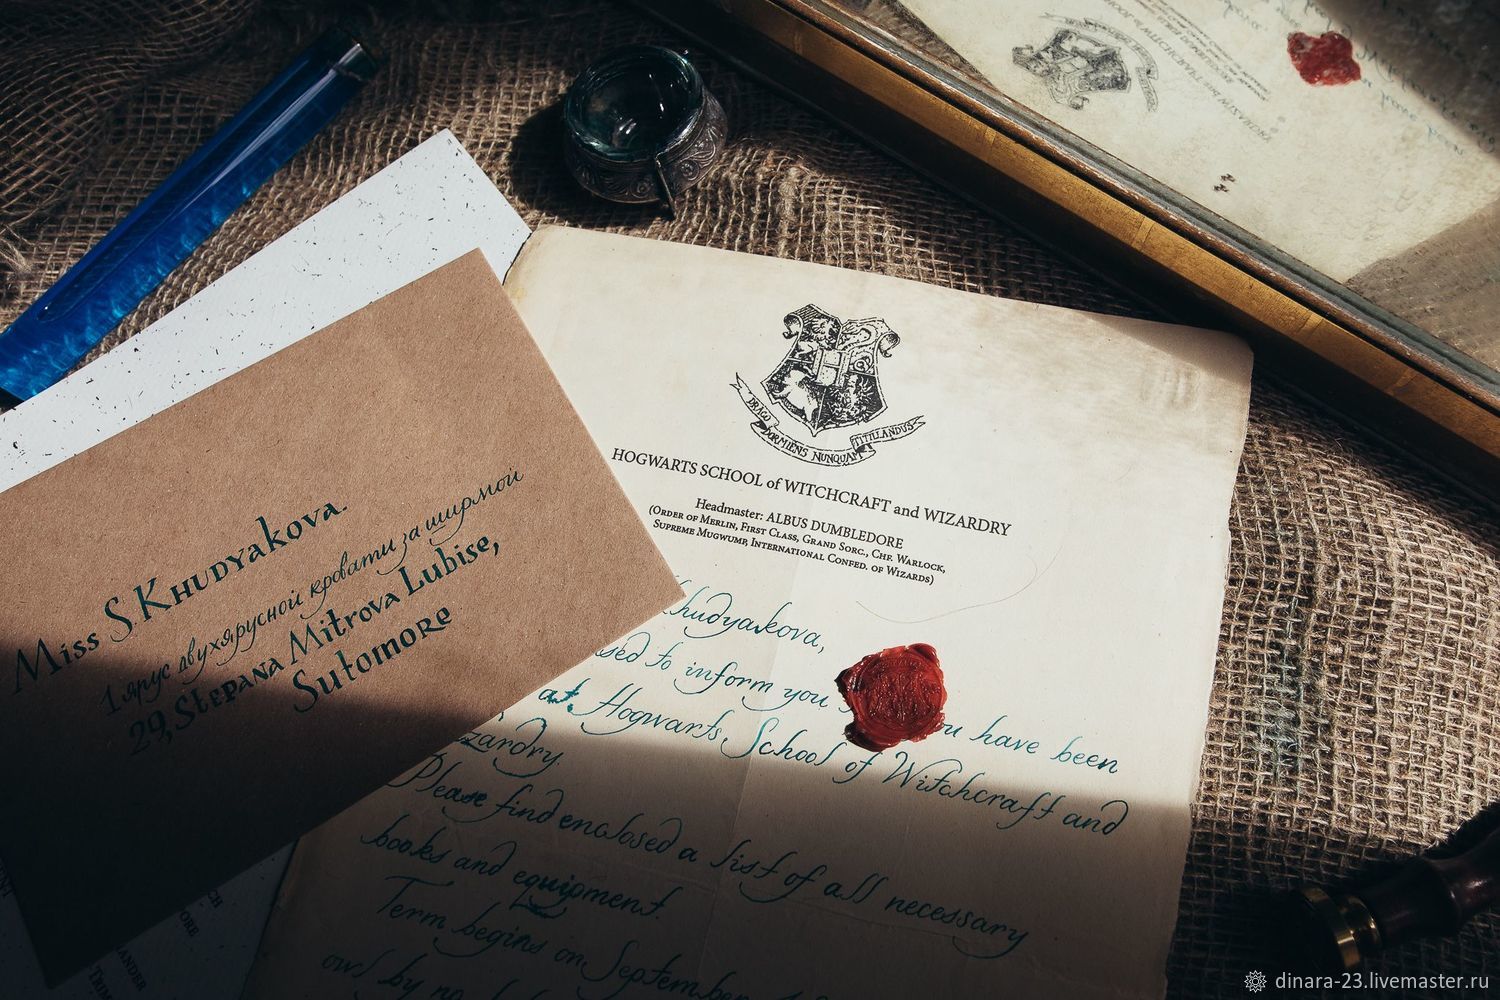 Miss S Khudyakova.
1 ярус двухярусной кровати за ширмой
29, Stepana Mitrova Lubise,
Sutomore
DRACO DORMIENS NUNQUAM TITILLANDUS
HOGWARTS SCHOOL of WITCHCRAFT and WIZARDRY
Headmaster: ALBUS DUMBLEDORE
(ORDER OF MERLIN, FIRST CLASS, GRAND SORC., CHF. WARLOCK,
SUPREME MUGWUMP, INTERNATIONAL CONFED. OF WIZARDS)
hudyakova,
sed to inform you u have been
at Hogwarts School of Witchcraft and
zardry.
Please find enclosed a list of all necessary
books and equipment.
Term begins on September
owl by no
dinara-23.livemaster.ru